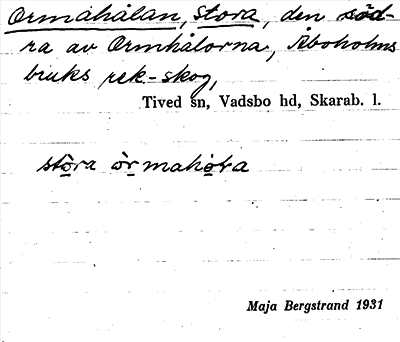 Ormahålan, Stora, den söd-
ra av Ormhålorna, Åboholms
bruks rek-skog,
Tived sn, Vadsbo hd, Skarab. l.
stòra òrmahòla
Maja Bergstrand 1931